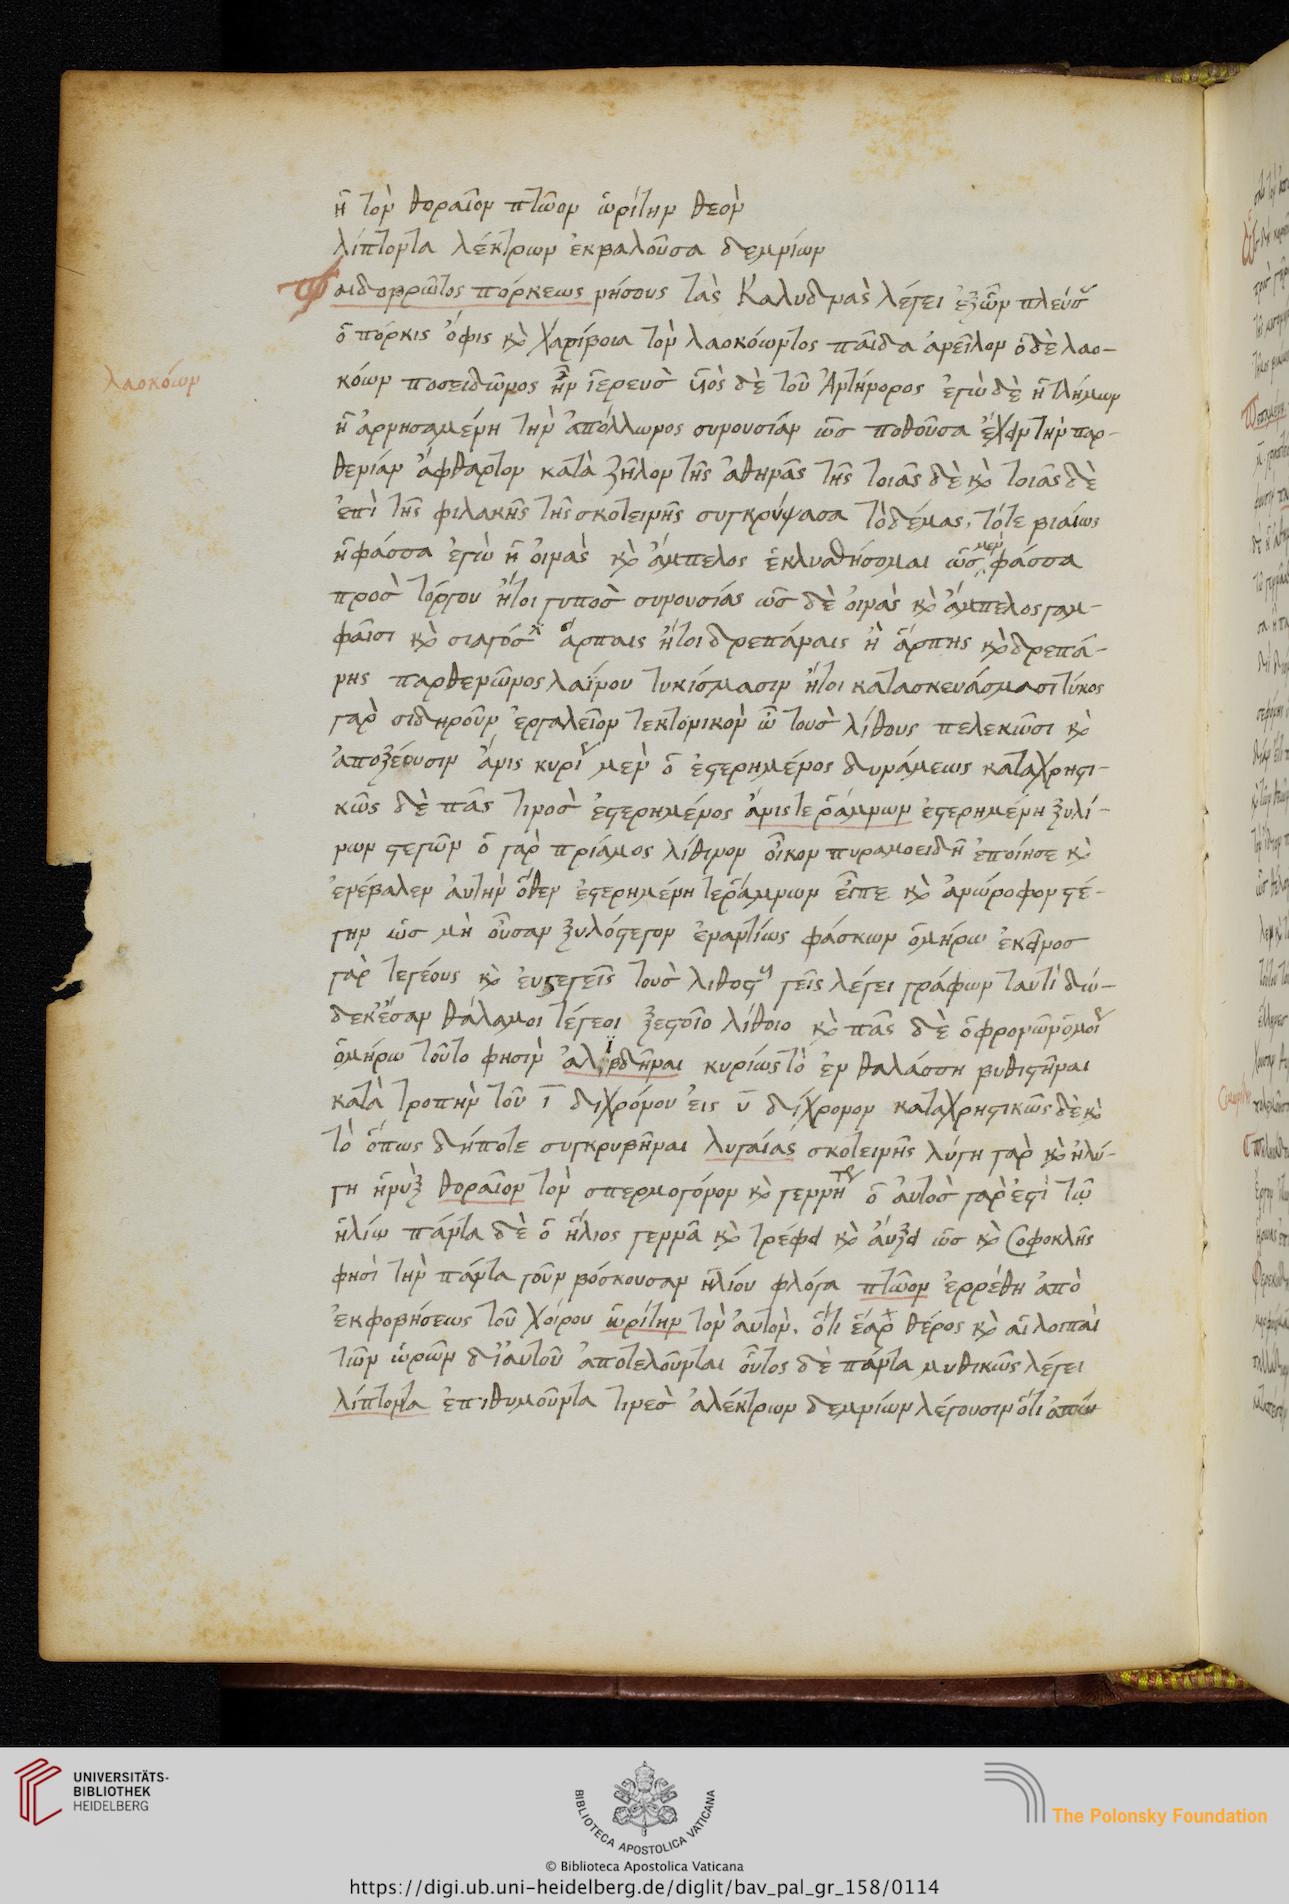 ἢ τὸν θοραῖον πτῶον ὡρίτην θεὸν
λίπτοντα λέκτρων ἐκβαλοῦσα δεμνίων
Παιδοβρῶτος πόρκεως νήσους τὰς Καλυδνας λέγει ἐξ ὧν
ὁ πόρκις ὄφις κὶ χαρίβοια τὸν λαοκόωντος παῖδα ἀνεῖλον ὁ δὲ λαο-
λαοκόων
κόων ποσειδῶνος ἦν ἱερευσ υἱὸς δὲ τοῦ Ἀντήνορος ἐγὼ δὲ ἡ τλήμων
ἡ ἀρνησαμένη τὴν ἀπόλλωνος συνουσίαν ὡσ ποθοῦσα ἔχειν τὴν παρ-
θενίαν ἄφθαρτον κατὰ ζῆλον τῆς ἀθηνᾶς τῆς τοιᾶς δὲ κὶ τοιᾶς δὲ
ἐπὶ τῆς φιλακῆς τῆς σκοτεινῆς συγκρύψασα τὸ δέμας, τότε βιαίως
ἡ φάσσα ἐγὼ ἡ οἰνὰς κὶ ἄμπελος ἑλκυσθήσομαι ὡσ μεν φάσσα
προσ τόργου ἤτοι γυποσ συνουσίας ὡσ δὲ οἰνὰς κὶ ἄμπελος γαμ-
φαῖσι κὶ σιαγόσι ἅρπαις ἤτοι δρεπάναις ἢ ἅρπης κὶ δρεπά-
νης παρθενῶνος λαΐνου τυκίσμασιν ἤτοι κατασκευάσμασι τύκος
γαρ σιδηροῦν ἐργαλεῖον τεκτονικὸν ᾧ τουσ λίθους πελεκῶσι κὶ
ἀποξέουσιν ἄνις κυρί μὲν ὁ ἐστερημένος δυνάμεως καταχρηστι-
κῶς δὲ πᾶς τινοσ ἐστερημένος ἄνις τεράμνων ἐστερημένη ξυλί-
νων στεγῶν ὁ γαρ πρίαμος λίθινον οἶκον πυραμοειδῆ ἐποίησε κὶ
ἐνέβαλεν ἀυτὴν ὅθεν ἐστερημένη τεράμνων εἶπε κὶ ἀνώροφον στέ-
γην ὡς μὴ οὖσαν ξυλόστεγον ἐναντίως φάσκων ὁμήρω ἐκεῖνοσ
γαρ τεγέους κὶ ἐυστεγεῖς τουσ λιθοστεγεῖς λέγει γράφων ταυτὶ δώ-
δεκ ἔσαν θάλαμοι τέγεοι ξεστοῖο λίθοιο κὶ πᾶς δὲ ὁ φρονῶν ὅμοι
ὁμήρω τοῦτο φησὶν ἀλιβδῆναι κυρίως τὸ ἐν θαλάσση βυθιστῆναι
κατὰ τροπὴν τοῦ ῑ διχρόνου εἰς ῡ δίχρονον καταχρηστικῶς δὲ κὶ
τὸ ὅπως δήποτε συγκρυβῆναι λυγαίας σκοτεινῆς λύγη γαρ κὶ ἠλύ-
γη ἡ νὺξ θοραῖον τὸν σπερμογόνον κὶ γεννητὴν ὁ ἀυτοσ γαρ ἐστὶ τῶ
ἡλίω πάντα δὲ ὁ ἥλιος γεννᾶ κὶ τρέφει κὶ ἀύξει ὡσ κὶ Σοφοκλῆς
φησὶ τὴν πάντα γοῦν βόσκουσαν ἡλίου φλόγα πτῶον ἐρρέθη ἀπὸ
ἐκφοβήσεως τοῦ χοίρου ὡρίτην τὸν ἀυτὸν. ὅτι ἔαρ θέρος κὶ αἱ λοιπαὶ
τῶν ὡρῶν δι ἀυτοῦ ἀποτελοῦνται οὗτος δὲ πάντα μυθικῶς λέγει
λίπτοντα ἐπιθυμοῦντα τινεσ ἀλέκτρων δεμνίων λέγουσιν ὅτι
UNIVERSITÄTS-
BIBLIOTHEK
HEIDELBERG
BIBLIOTECA APOSTOLICA VATICANA
The Polonsky Foundation
© Biblioteca Apostolica Vaticana
https://digi.ub.uni-heidelberg.de/diglit/bav_pal_gr_158/0114